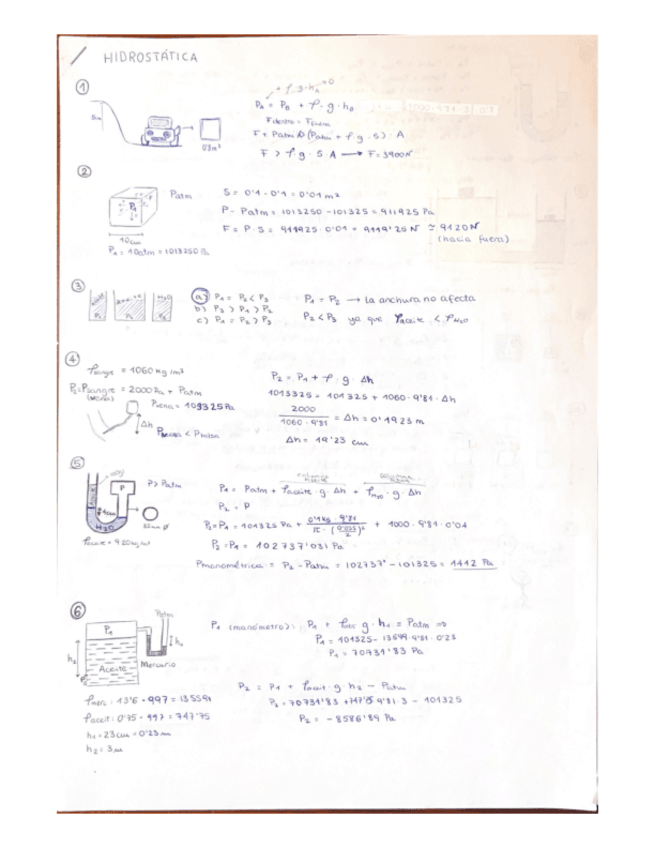 HIDROSTÁTICA
①
P_A = P_0 + ρ · g · h_0
F dentro = F fuera
F + Patm · A > (Patm + ρ g · 5) · A
F > ρ g · 5 A → F = 3900N
5m
0'8m²
②
P₁
Patm
10cm
P₁ = 10atm = 1013250 Pa
S = 0'1 · 0'1 = 0'01 m²
P - Patm = 1013250 - 101325 = 911925 Pa
F = P · S = 911925 · 0'01 = 9119'25N ≃ 9120N
(hacia fuera)
③
a) P₁ = P₂ < P₃
b) P₃ > P₁ > P₂
c) P₁ = P₂ > P₃
P₁ = P₂ → la anchura no afecta
P₂ < P₃ ya que ρaceite < ρH₂O
④
ρsangre = 1060 kg/m³
P₂ = Psangre = 2000 Pa + Patm
Pvena = 103325 Pa
Δh
P₂ = P₁ + ρ · g · Δh
1013325 = 101325 + 1060 · 9'81 · Δh
2000 / 1060 · 9'81 = Δh = 0'1923 m
Δh = 19'23 cm
⑤
P > Patm
P
H₂O
ρaceite = 920 kg/m³
P₁ = Patm + ρaceite · g · Δh + ρH₂O · g · Δh
P₂ = P
P₂ = P₁ = 101325 Pa + 0'1 kg · 9'81 / π · (0'025/2)² + 1000 · 9'81 · 0'04
P₂ = P₁ = 102737'031 Pa
Pmanométrica = P₂ - Patm = 102737' - 101325 = 1412 Pa
⑥
P₁
Patm
h₁
h₂
Aceite
Mercurio
P₁ (manómetro): P₁ + ρmerc g · h₁ = Patm ⇒
P₁ = 101325 - 13599 · 9'81 · 0'23
P₁ = 70731'83 Pa
ρmerc: 13'6 · 997 = 13559
ρaceit: 0'75 · 997 = 747'75
h₁ = 23cm = 0'23m
h₂ = 3m
P₂ = P₁ + ρaceit g h₂ - Patm
P₂ = 70731'83 + 747'75 9'81 · 3 - 101325
P₂ = -8586'89 Pa